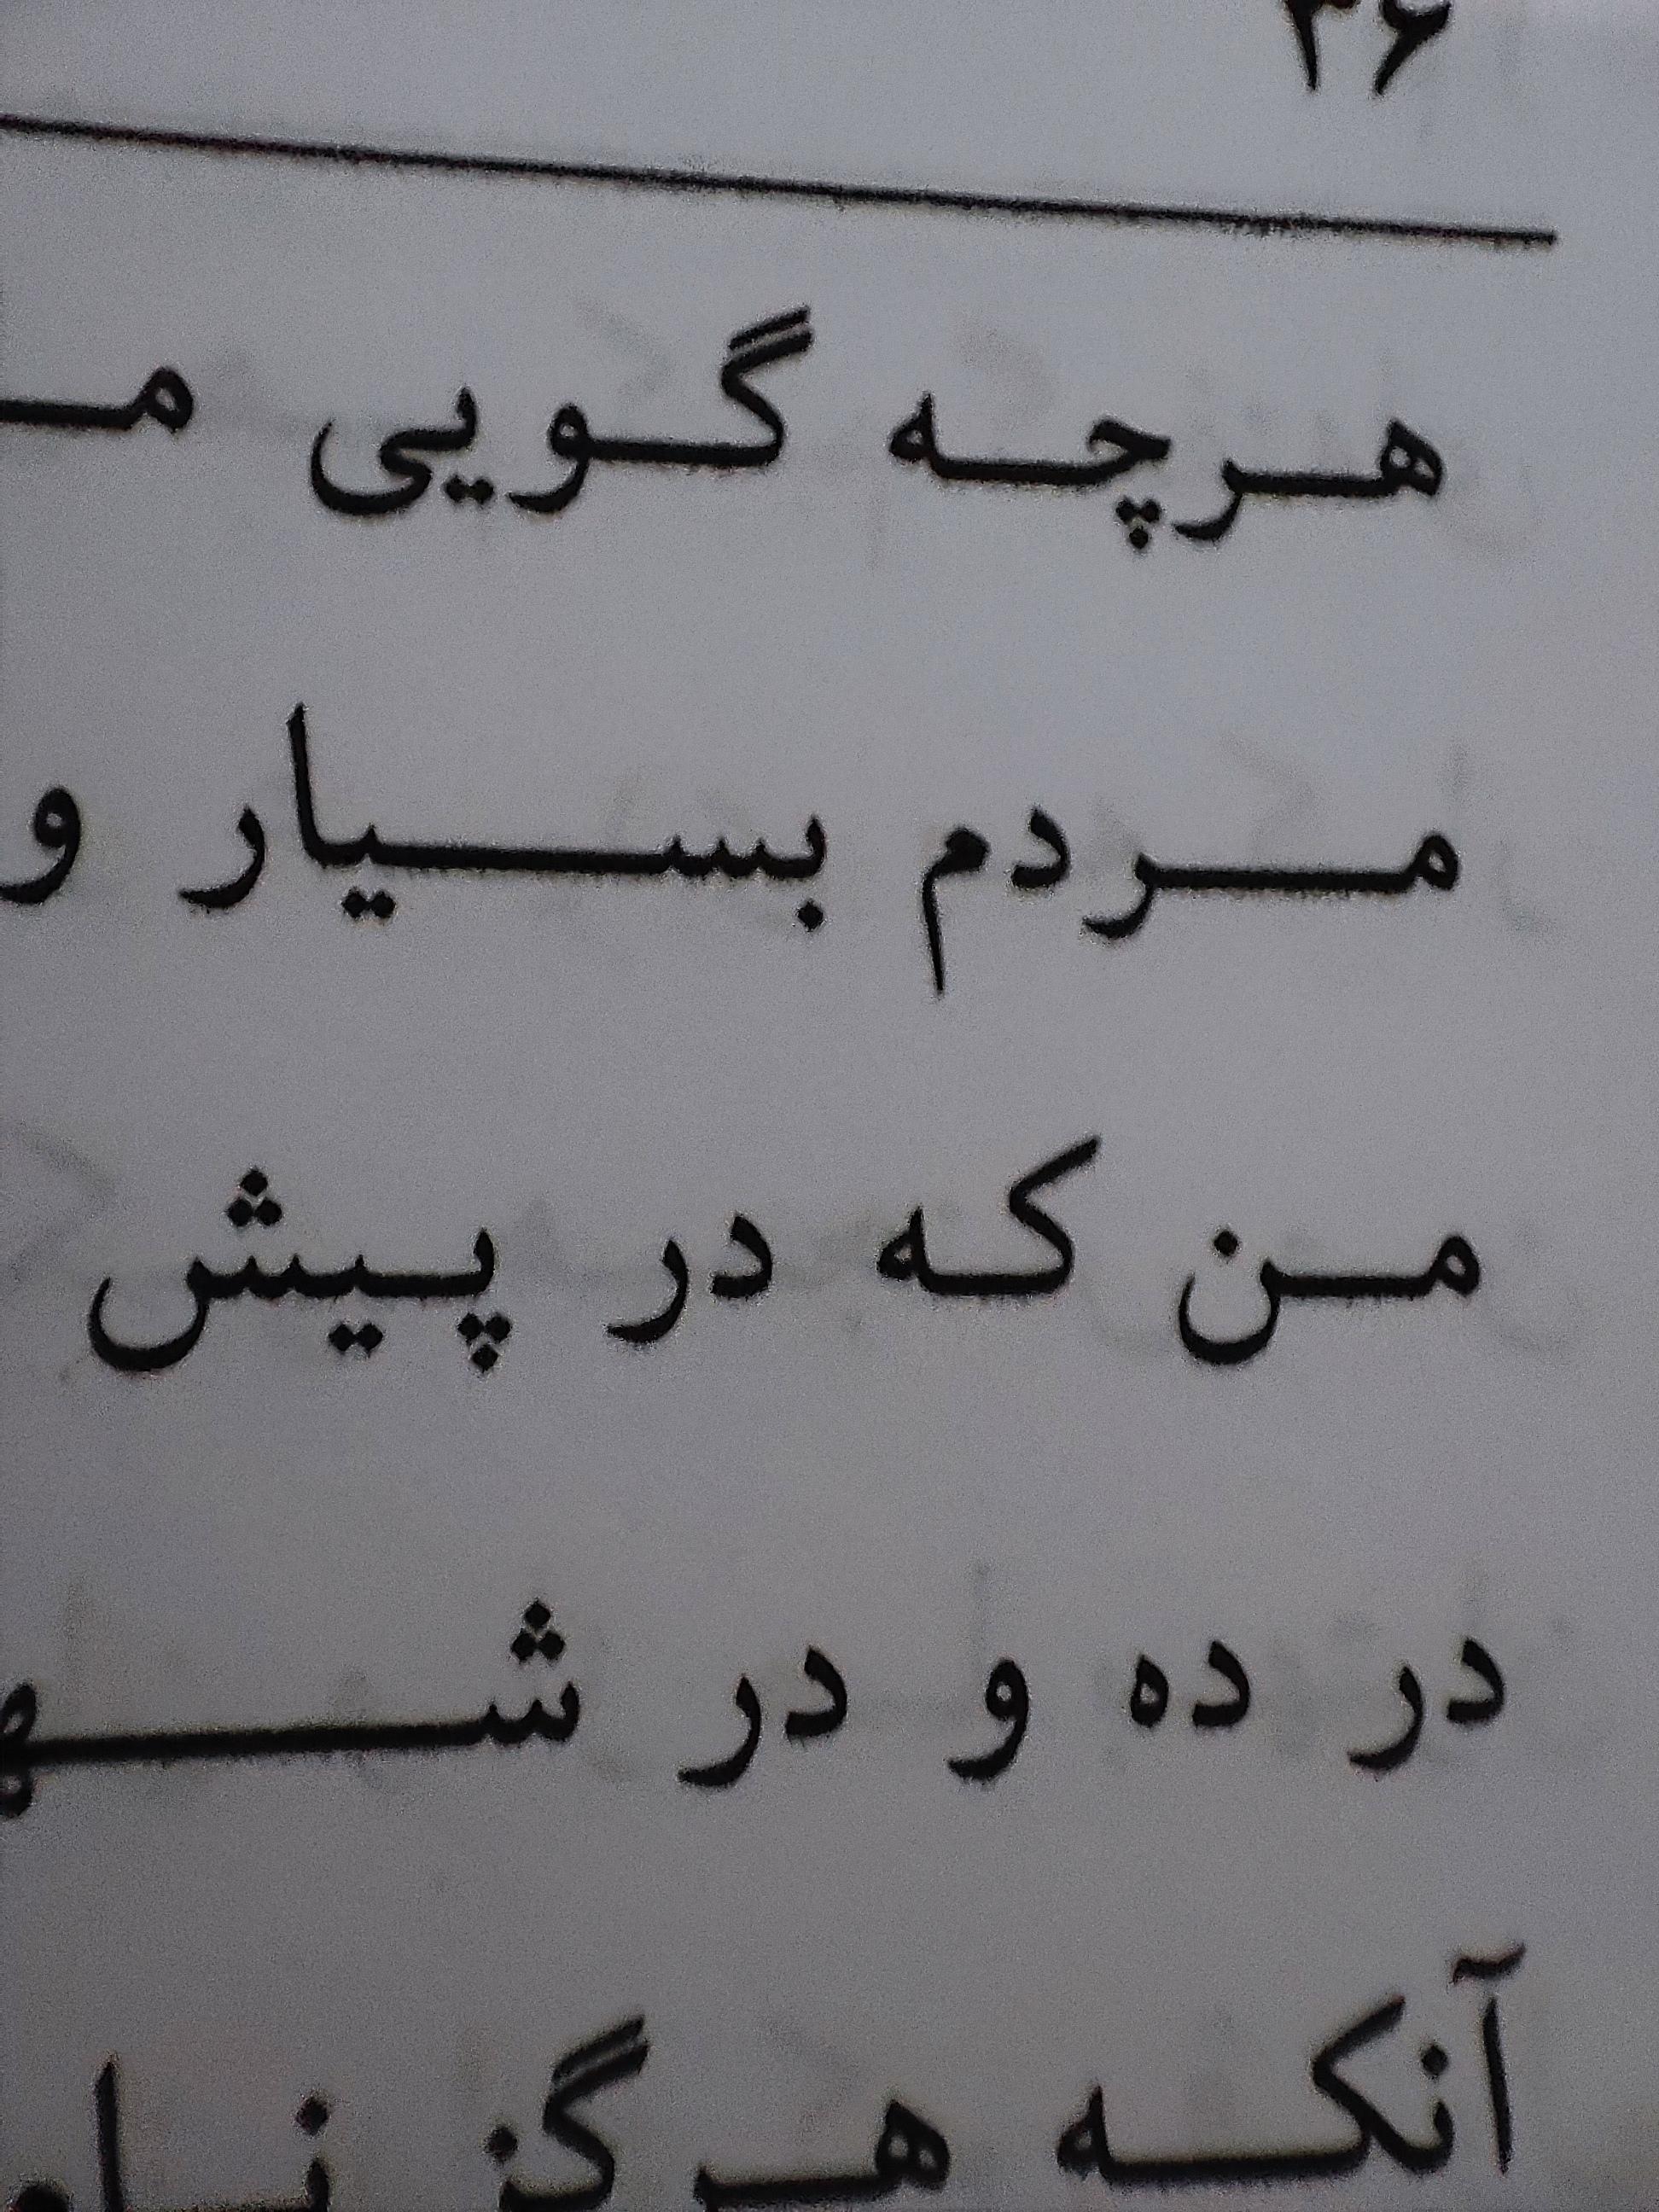 ۳۶
هرچه گویی
مردم بسیار و
من که در پیش
در ده و در
آنکه هرگز